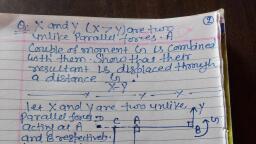 Q. X and Y (X > Y) are two
unlike Parallel forces. A
Couple of moment G is combined
with them. Show that their
resultant is displaced through
a distance G
X-Y
Let X and Y are two unlike
Parallel forces
acting at A
and B respective
C A
Y
B